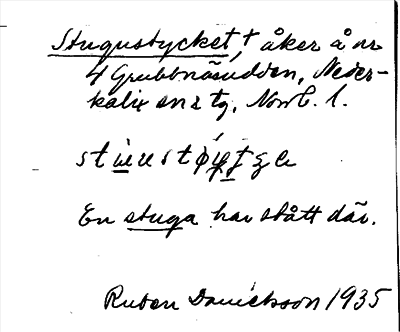 Stugustycket, † åker å nr
4 Grubbnäsudden, Neder-
kalix sn o tg, Norrb. l.
En stuga har stått där.
Ruben Danielsson 1935